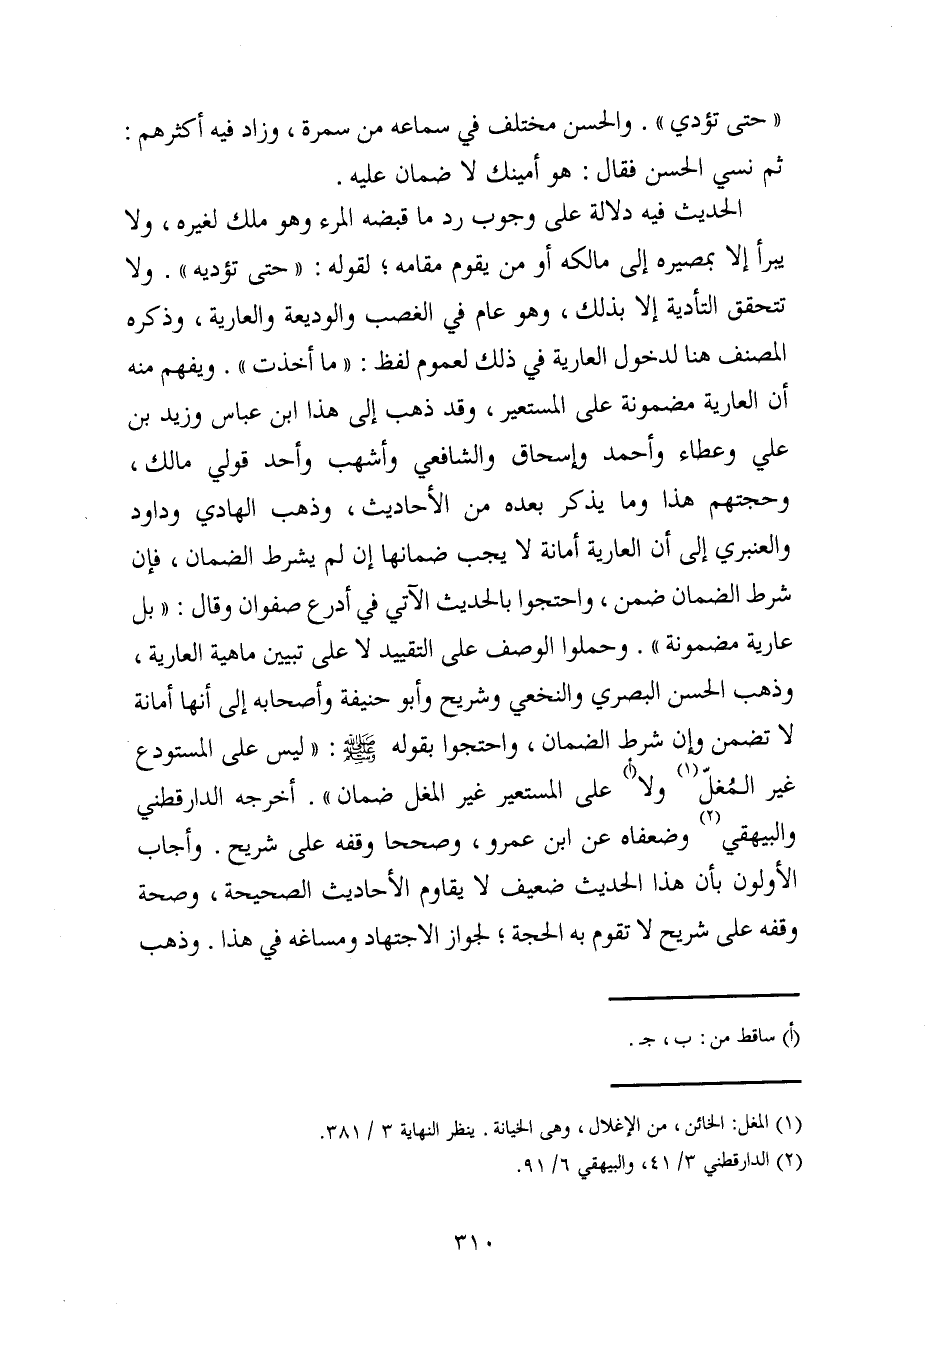 « حتى تؤدي » . والحسن مختلف في سماعه من سمرة ، وزاد فيه أكثرهم :
ثم نسي الحسن فقال : هو أمينك لا ضمان عليه .
الحديث فيه دلالة على وجوب رد ما قبضه المرء وهو ملك لغيره ، ولا
يبرأ إلا بمصيره إلى مالكه أو من يقوم مقامه ؛ لقوله : « حتى تؤديه » . ولا
تتحقق التأدية إلا بذلك ، وهو عام في الغصب والوديعة والعارية ، وذكره
المصنف هنا لدخول العارية في ذلك لعموم لفظ : « ما أخذت » . ويفهم منه
أن العارية مضمونة على المستعير ، وقد ذهب إلى هذا ابن عباس وزيد بن
علي وعطاء وأحمد وإسحاق والشافعي وأشهب وأحد قولي مالك ،
وحجتهم هذا وما يذكر بعده من الأحاديث ، وذهب الهادي وداود
والعنبري إلى أن العارية أمانة لا يجب ضمانها إن لم يشرط الضمان ، فإن
شرط الضمان ضمن ، واحتجوا بالحديث الآتي في أدرع صفوان وقال : « بل
عارية مضمونة » . وحملوا الوصف على التقييد لا على تبيين ماهية العارية ،
وذهب الحسن البصري والنخعي وشريح وأبو حنيفة وأصحابه إلى أنها أمانة
لا تضمن وإن شرط الضمان ، واحتجوا بقوله ﷺ : « ليس على المستودع
غير المُغلّ(١) ولا(أ) على المستعير غير المغل ضمان » . أخرجه الدارقطني
والبيهقي(٢) وضعفاه عن ابن عمرو ، وصححا وقفه على شريح . وأجاب
الأولون بأن هذا الحديث ضعيف لا يقاوم الأحاديث الصحيحة ، وصحة
وقفه على شريح لا تقوم به الحجة ؛ لجواز الاجتهاد ومساغه في هذا . وذهب
(أ) ساقط من : ب ، جـ .
(١) المغل: الخائن ، من الإغلال ، وهى الخيانة . ينظر النهاية ٣ / ٣٨١.
(٢) الدارقطني ٣/ ٤١، والبيهقي ٦/ ٩١.
٣١٠